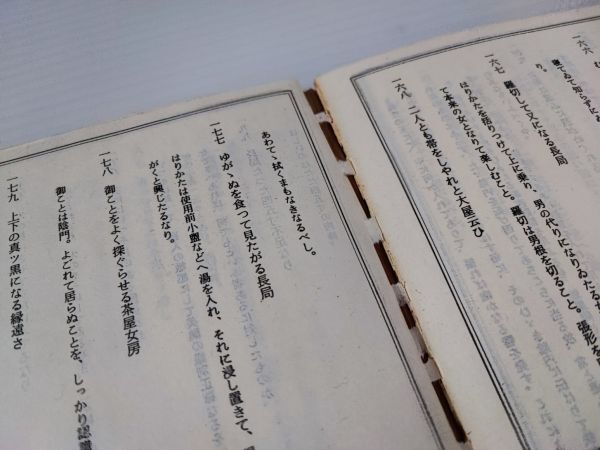 一六六
寝てゐて知らずに
り。
一六七 羅切して又になる長局
はりかたを括りつけて上に乗り、男の代りになりゐたる
て本来の女とはりて楽しむこと。羅切は男根を切ること。張形を
一六八 二人とも帯をしやれと大屋云ひ
あわてゝ拭くまもなきなるべし。
一七七 ゆがゝぬを食つて見たがる長局
はりかたは使用前小盥などへ湯を入れ、それに浸し置きて、
がくと興じたるなり。
一七八 御ことをよく探ぐらせる茶屋女房
御ことは陰門。よごれて居らぬことを、しつかり認識
一七九 上下の真ッ黒になる縁遠さ